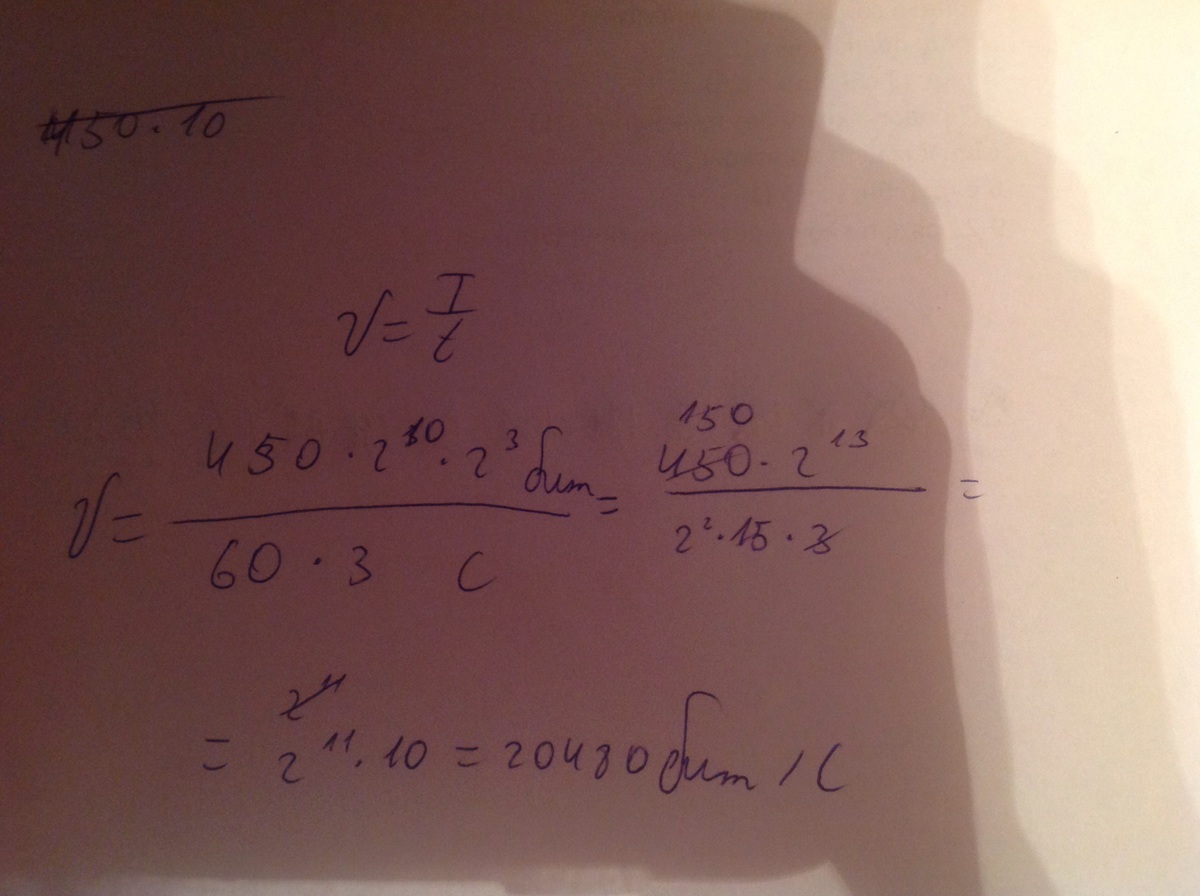 450·10
V = I/t
V = (450 · 2^10 · 2^3 бит)/(60 · 3 с) = (150 450 · 2^13)/(2^2 · 15 · 3) =
2^11
= 2^11 · 10 = 20480 бит / с